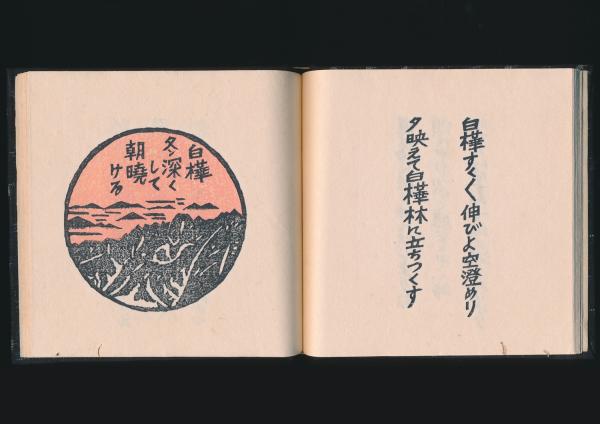 白樺すくすく伸びよ空澄めり
夕映えて白樺林に立ちつくす
白樺
冬深く
して
朝暁
ける